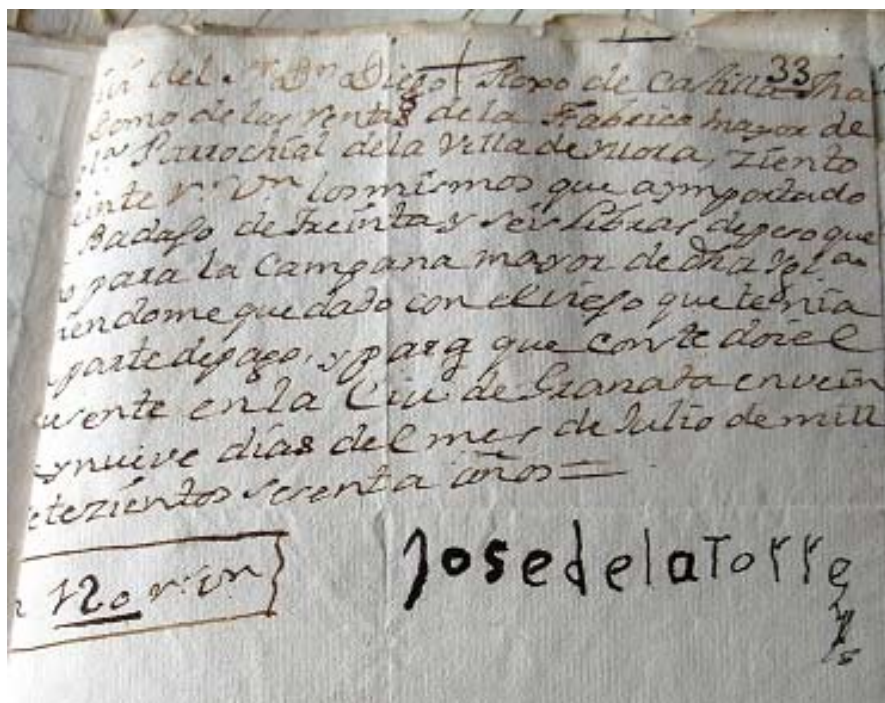 33
del Sr Dn Diego de Castilla
domo de las rentas de la Fabrica mayor de
Parrochial de la Villa de Yllora, Ziento
einte rs. Vn los mismos que aymportado
Badajo de treinta y seis Libras de peso que
para la Campana mayor de dha Ygla
iendome quedado con el viejo que tenia
parte de pago, y para que conste doi el
esente en la Ciu de Granada en vein
y nueve dias del mes de Julio de mill
etezientos sesenta años =
120 rs. vn
Jose de la Torre